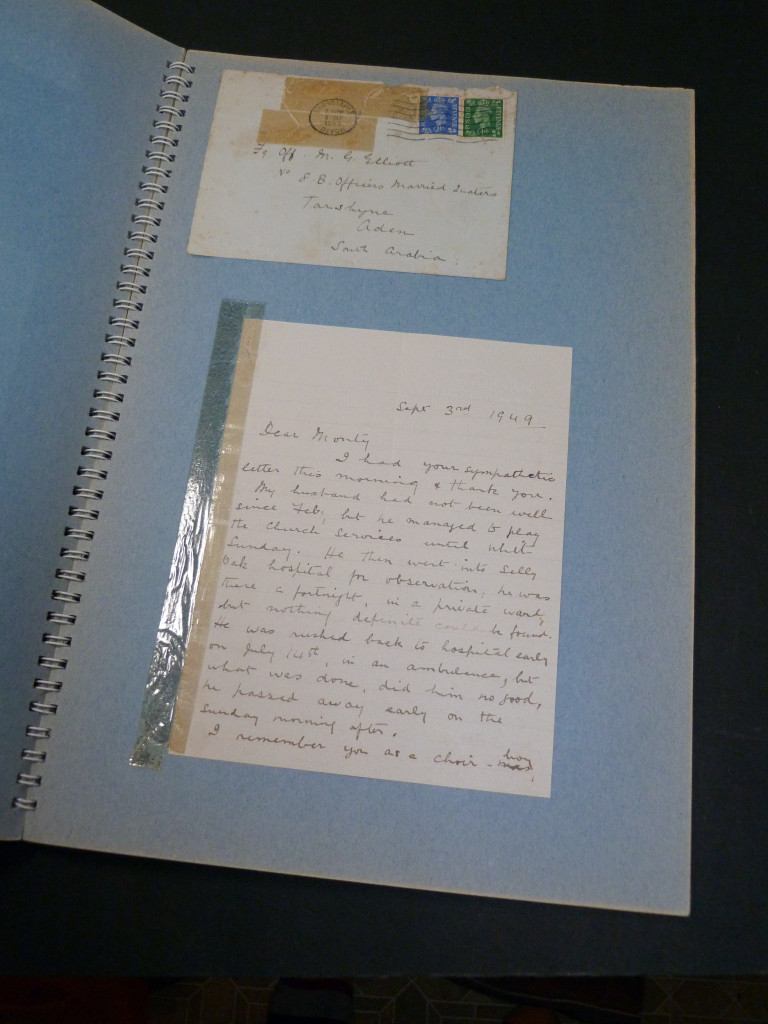 Fg Off. M. G. Elliott
No 8. B. Officers Married Quaters
Tarshyne
Aden
South Arabia.
Sept 3rd 1949
Dear Monty
I had your sympathetic
letter this morning & thank you.
My husband had not been well
since Feb, but he managed to play
the Church Services until Whit-
Sunday. He then went into Selly
Oak hospital for observation, he was
there a fortnight, in a private ward,
but nothing definite could be found.
He was rushed back to hospital early
on July 14th, in an ambulance, but
what was done, did him no good,
he passed away early on the
Sunday morning after.
I remember you as a choir-boy,